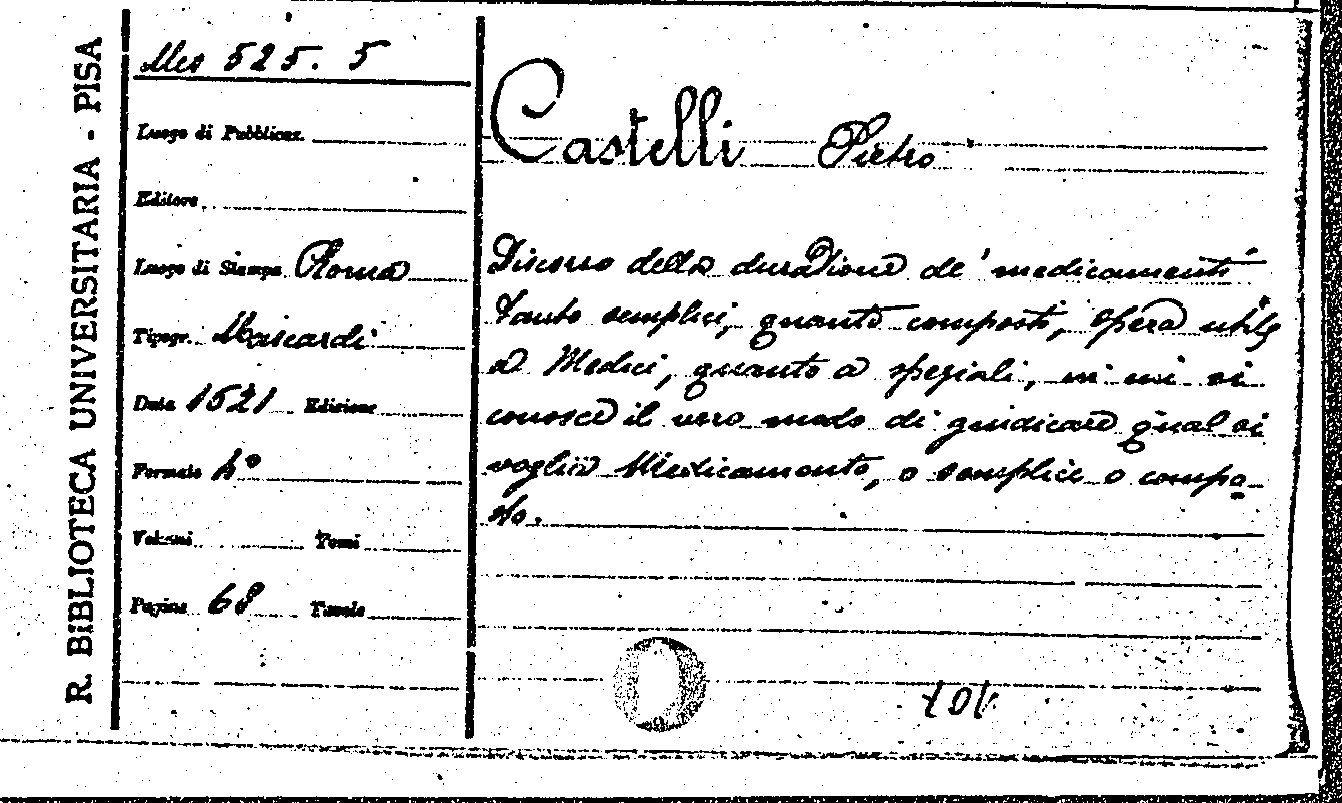 R. BIBLIOTECA UNIVERSITARIA - PISA
Mes 525. 5
Luogo di Pubblicaz.
Editore
Luogo di Stampa Roma
Tipogr. Mascardi
Data 1521 Edizione
Formato 4º
Volumi Tomi
Pagine 68 Tavole
Castelli Pietro
Discorso della duratione de' medicamenti
tanto semplici, quanto composti, opera utile
a Medici, quanto a speziali, in cui si
conosce il vero modo di giudicare qual si
voglia Medicamento, o semplice o compo-
sto.